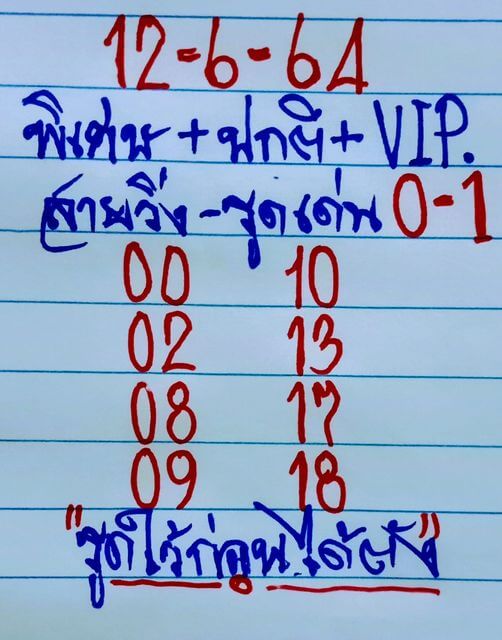 12-6-64
พิเศษ + ปกติ + VIP.
สายวิ่ง - รูดเด่น 0-1
00 10
02 13
08 17
09 18
"รูดไว้ก่อนได้ตัง"